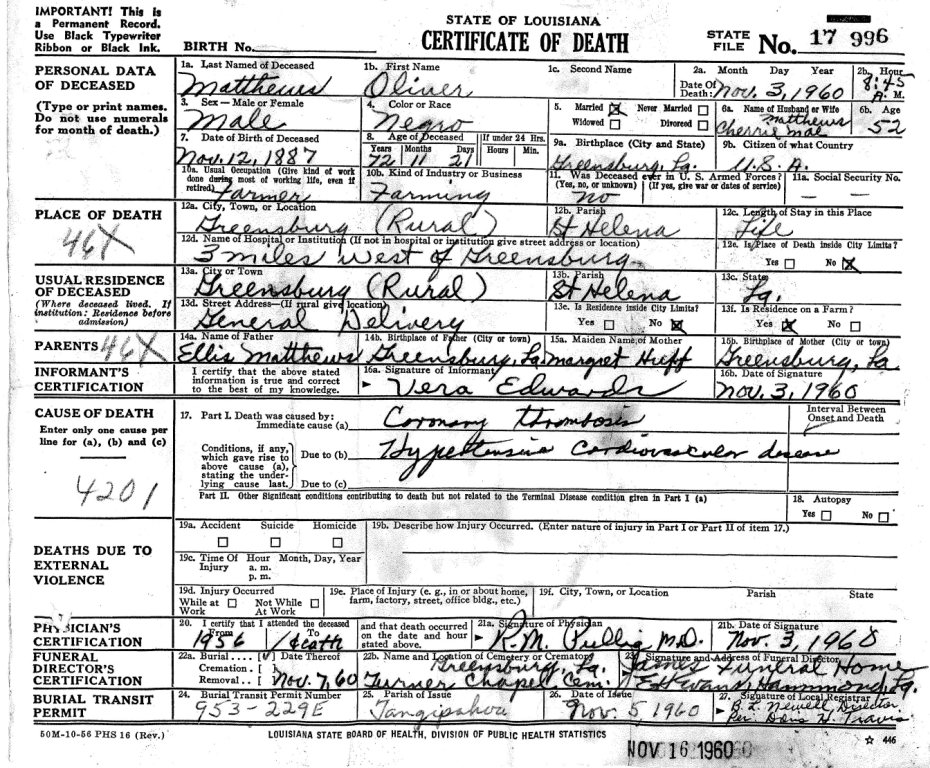 IMPORTANT! This is
a Permanent Record.
Use Black Typewriter
Ribbon or Black Ink.
STATE OF LOUISIANA
CERTIFICATE OF DEATH
BIRTH No.
STATE
FILE No. 17 996
PERSONAL DATA
OF DECEASED
(Type or print names.
Do not use numerals
for month of death.)
1a. Last Named of Deceased 1b. First Name 1c. Second Name 2a. Month Day Year 2b. Hour
Matthews Oliver Date Of Death: Nov. 3, 1960 8:45 A. M.
3. Sex — Male or Female 4. Color or Race 5. Married ☒ Never Married ☐ 6a. Name of Husband or Wife 6b. Age
Male Negro Widowed ☐ Divorced ☐ Cherrie Mae Matthews 52
7. Date of Birth of Deceased 8. Age of Deceased If under 24 Hrs. 9a. Birthplace (City and State) 9b. Citizen of what Country
Years Months Days Hours Min.
Nov. 12, 1887 72 11 21 Greensburg, La. U. S. A.
10a. Usual Occupation (Give kind of work
done during most of working life, even if
retired) Farmer
10b. Kind of Industry or Business
Farming
11. Was Deceased ever in U. S. Armed Forces?
(Yes, no, or unknown) (If yes, give war or dates of service)
no
11a. Social Security No.
— —
PLACE OF DEATH
46X
12a. City, Town, or Location 12b. Parish 12c. Length of Stay in this Place
Greensburg (Rural) St Helena Life
12d. Name of Hospital or Institution (If not in hospital or institution give street address or location) 12e. Is Place of Death inside City Limits?
3 miles west of Greensburg Yes ☐ No ☒
USUAL RESIDENCE
OF DECEASED
(Where deceased lived. If
institution: Residence before
admission)
13a. City or Town 13b. Parish 13c. State
Greensburg (Rural) St Helena La.
13d. Street Address—(If rural give location) 13e. Is Residence inside City Limits? 13f. Is Residence on a Farm?
General Delivery Yes ☐ No ☒ Yes ☒ No ☐
PARENTS 46X
14a. Name of Father 14b. Birthplace of Father (City or town) 15a. Maiden Name of Mother 15b. Birthplace of Mother (City or town)
Ellis Matthews Greensburg, La Margret Greensburg, La
INFORMANT'S
CERTIFICATION
I certify that the above stated
information is true and correct
to the best of my knowledge.
16a. Signature of Informant 16b. Date of Signature
Vera Edwards Nov. 3, 1960
CAUSE OF DEATH
Enter only one cause per
line for (a), (b) and (c)
4201
17. Part I. Death was caused by:
Immediate cause (a) Coronary thrombosis
Interval Between
Onset and Death
Conditions, if any,
which gave rise to
above cause (a),
stating the under-
lying cause last.
Due to (b) Hypertensive Cardiovascular disease
Due to (c)
Part II. Other Significant conditions contributing to death but not related to the Terminal Disease condition given in Part I (a)
18. Autopsy
Yes ☐ No ☐
DEATHS DUE TO
EXTERNAL
VIOLENCE
19a. Accident Suicide Homicide 19b. Describe how Injury Occurred. (Enter nature of injury in Part I or Part II of item 17.)
☐ ☐ ☐
19c. Time Of Hour Month, Day, Year
Injury a. m.
p. m.
19d. Injury Occurred
While at ☐ Not While ☐
Work At Work
19e. Place of Injury (e. g., in or about home,
farm, factory, street, office bldg., etc.)
19f. City, Town, or Location Parish State
PHYSICIAN'S
CERTIFICATION
20. I certify that I attended the deceased
From To
1956 Death
and that death occurred
on the date and hour
stated above.
21a. Signature of Physician 21b. Date of Signature
M.D. Nov. 3, 1960
FUNERAL
DIRECTOR'S
CERTIFICATION
22a. Burial .... [√] Date Thereof
Cremation . [ ]
Removal . . [ ] Nov. 7, 60
22b. Name and Location of Cemetery or Crematory
Greensburg, La.
Turner Chapel Cem.
23. Signature and Address of Funeral Director
Funeral Home
Hammond, La.
BURIAL TRANSIT
PERMIT
24. Burial Transit Permit Number 25. Parish of Issue 26. Date of Issue 27. Signature of Local Registrar
953-229E Tangipahoa Nov. 5 1960 B. L. Newell, Director
Per: Doris H. Travis
50M-10-56 PHS 16 (Rev.) LOUISIANA STATE BOARD OF HEALTH, DIVISION OF PUBLIC HEALTH STATISTICS ☆ 446
NOV 16 1960